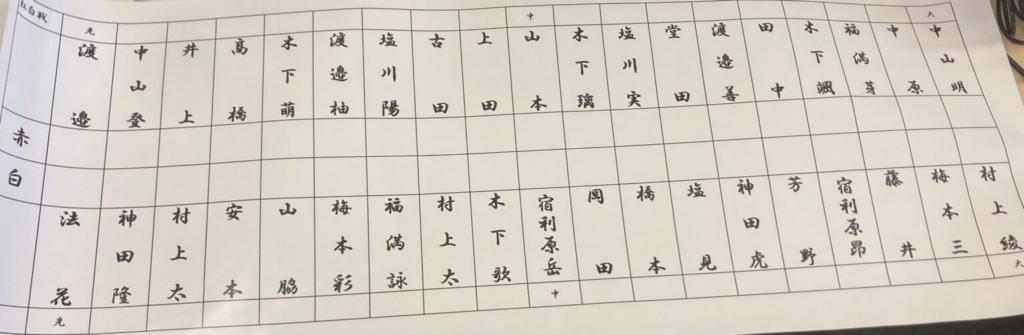 紅白戦
光 中 大
渡邉 中山登 井上 髙橋 木下萌 渡邉柚 塩川陽 古田 上田 山本 木下璃 塩川実 堂田 渡邉善 田中 木下颯 福満芽 中原 中山明
赤
白
法花 神田隆 村上太 安本 山脇 梅本彩 福満詠 村上太 木下歌 宿利原岳 岡田 橋本 塩見 神田虎 芳野 宿利原昂 藤井 梅本三 村上綾
光 中 大